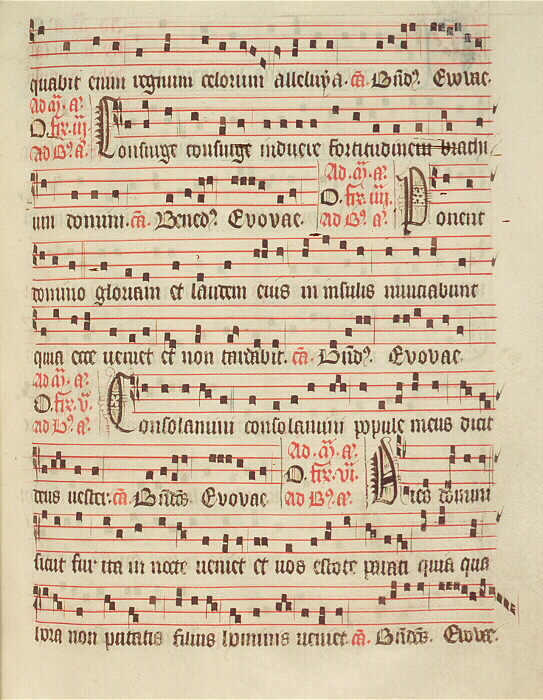 quabit enim regnum celorum alleluya. ca. Bnd᷒. Evovae.
Ad
O. fer. iij.
Ad B᷒. a᷒.
Consurge consurge induere fortitudinem brachi
um domini. ca. Bened᷒. Evovae.
Ad
O. fer. iiij.
Ad B᷒. a᷒.
Ponent
domino gloriam et laudem eius in insulis nunciabunt
quia ecce veniet et non tardabit. ca. Bnd᷒. Evovae.
Ad
O. fer. v.
Ad B᷒. a᷒.
Consolamini consolamini popule meus dicit
deus vester. ca. Evovae.
Ad
O. fer. vi.
Ad B᷒. a᷒.
dies domini
sicut fur ita in nocte veniet et vos estote parati quia qua
hora non putatis filius hominis veniet. ca. Evovae.